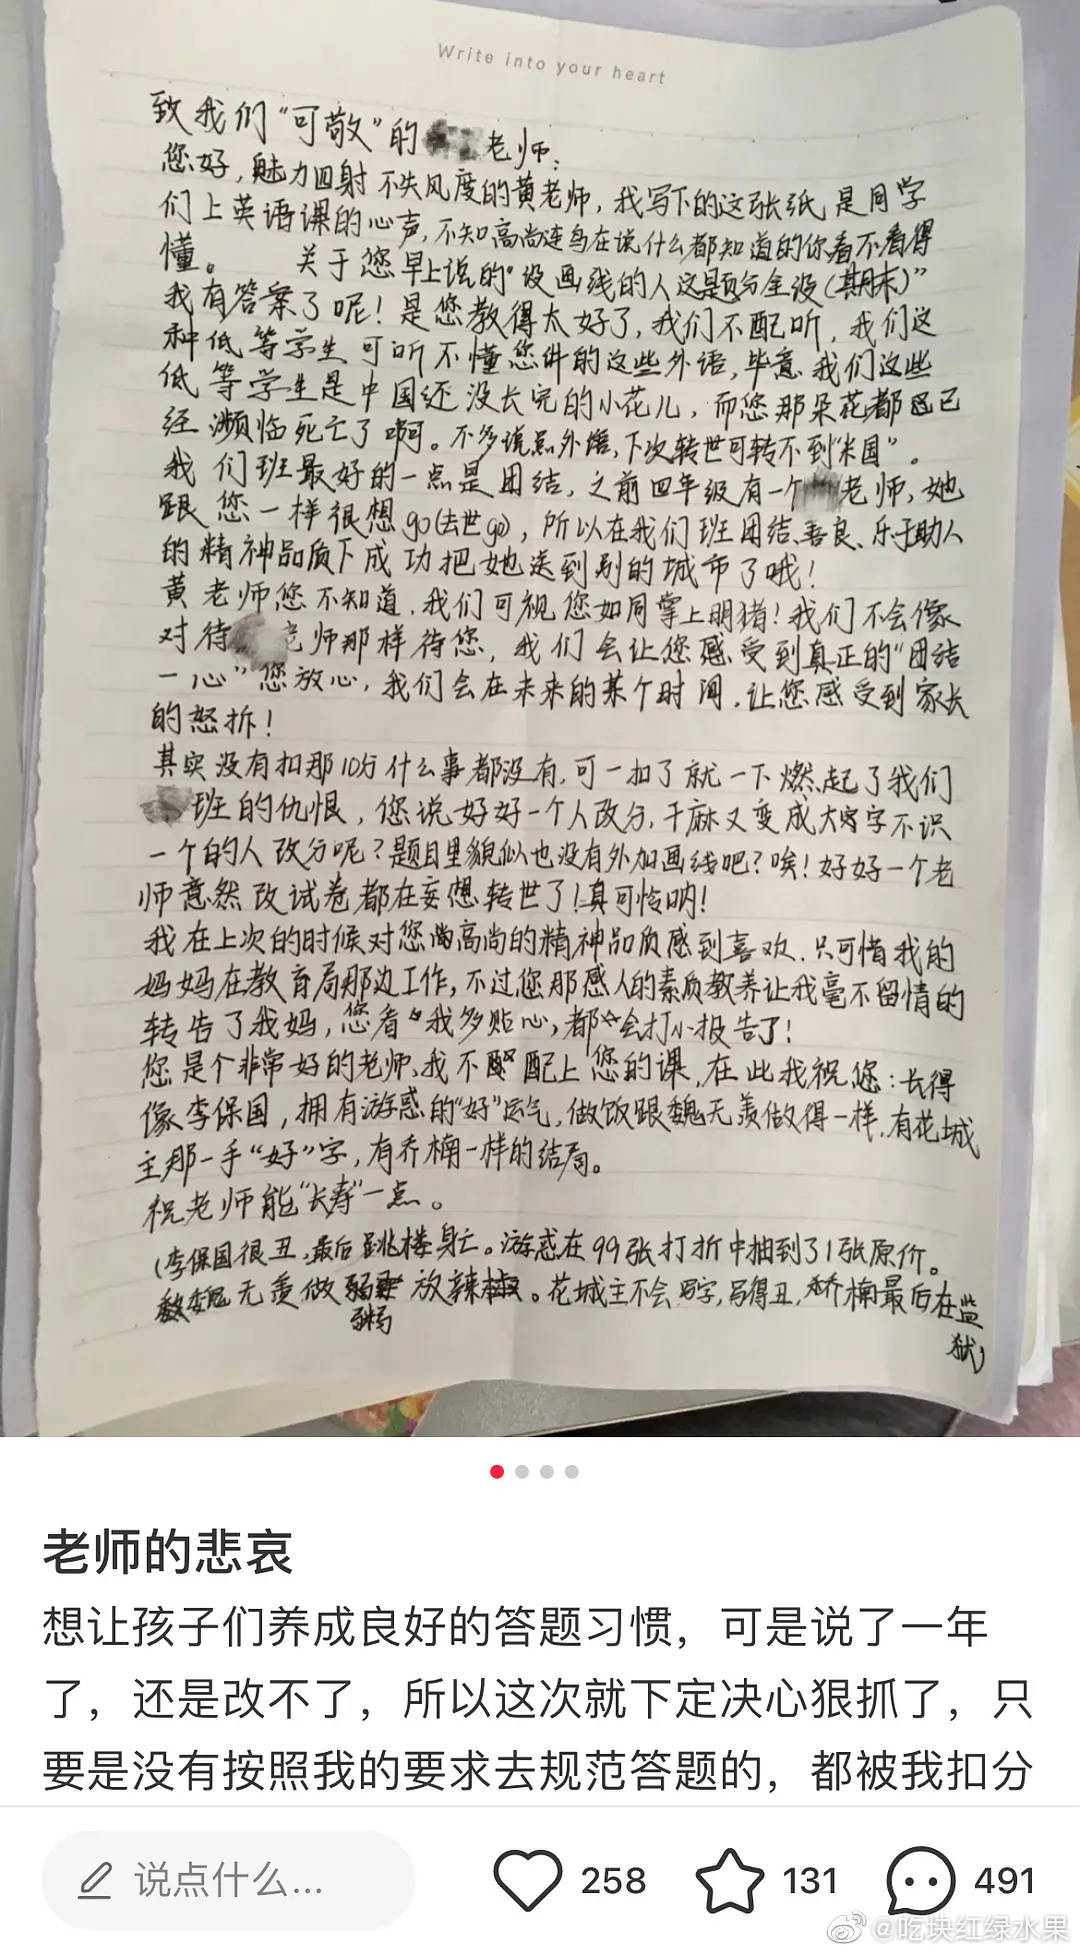 Write into your heart
致我们“可敬”的老师:
您好，魅力四射不失风度的黄老师，我写下的这张纸，是同学
们上英语课的心声，不知高尚连鸟在说什么都知道的你看不看得
懂。 关于您早上说的“没画线的人这题分全没(期末)”
我有答案了呢！是您教得太好了，我们不配听，我们这
种低等学生可听不懂您讲的这些外语，毕竟我们这些
低等学生是中国还没长完的小花儿，而您那朵花都已
经濒临死亡了啊。不多说点外语，下次转世可转不到“米国”。
我们班最好的一点是团结，之前四年级有一个老师，她
跟您一样很想go(去世go)，所以在我们班团结、善良、乐于助人
的精神品质下成功把她送到别的城市了哦！
黄老师您不知道，我们可视您如同掌上明猪！我们不会像
对待老师那样待您，我们会让您感受到真正的“团结
一心”您放心，我们会在未来的某个时间，让您感受到家长
的怒拆！
其实没有扣那10分什么事都没有，可一扣了就一下燃起了我们
班的仇恨，您说好好一个人改分，干麻又变成大字不识
一个的人改分呢？题目里貌似也没有外加画线吧？唉！好好一个老
师意然改试卷都在妄想转世了！真可怜呐！
我在上次的时候对您高尚的精神品质感到喜欢，只可惜我的
妈妈在教育局那边工作，不过您那感人的素质教养让我毫不留情的
转告了我妈，您看我多贴心，都会打小报告了！
您是个非常好的老师，我不配上您的课，在此我祝您：长得
像李保国，拥有游惑的“好”运气，做饭跟魏无羡做得一样，有花城
主那一手“好”字，有乔楠一样的结局。
祝老师能“长寿”一点。
(李保国很丑，最后跳楼身亡。游惑在99张打折中抽到了1张原价。
魏无羡做粥放辣椒。花城主不会写字，写得丑，乔楠最后在监
狱)
老师的悲哀
想让孩子们养成良好的答题习惯，可是说了一年
了，还是改不了，所以这次就下定决心狠抓了，只
要是没有按照我的要求去规范答题的，都被我扣分
说点什么...
258
131
491
@吃块红绿水果